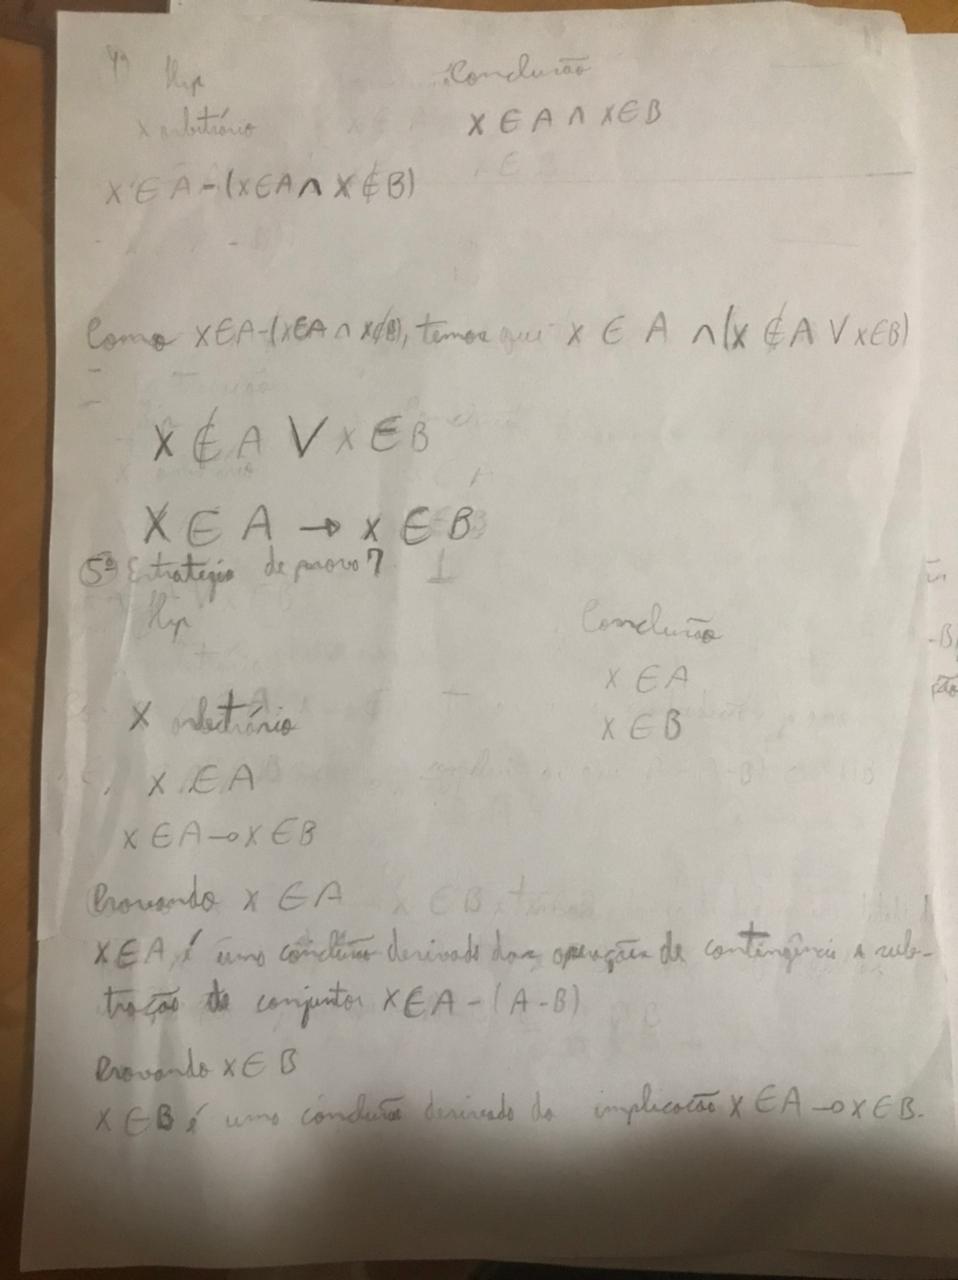 4) Hip Conclusão
x arbitrário x ∈ A ∧ x ∈ B
x ∈ A - (x ∈ A ∧ x ∉ B)
Como x ∈ A - (x ∈ A ∧ x ∉ B), temos que x ∈ A ∧ (x ∉ A ∨ x ∈ B)
x ∉ A ∨ x ∈ B
x ∈ A → x ∈ B
5º Estratégia de prova?
Hip Conclusão
x ∈ A
x arbitrário x ∈ B
x ∈ A
x ∈ A → x ∈ B
Provando x ∈ A
x ∈ A é uma conclusão derivada das operações de contingência e sub-
tração de conjuntos x ∈ A - (A - B)
Provando x ∈ B
x ∈ B é uma conclusão derivada da implicação x ∈ A → x ∈ B.